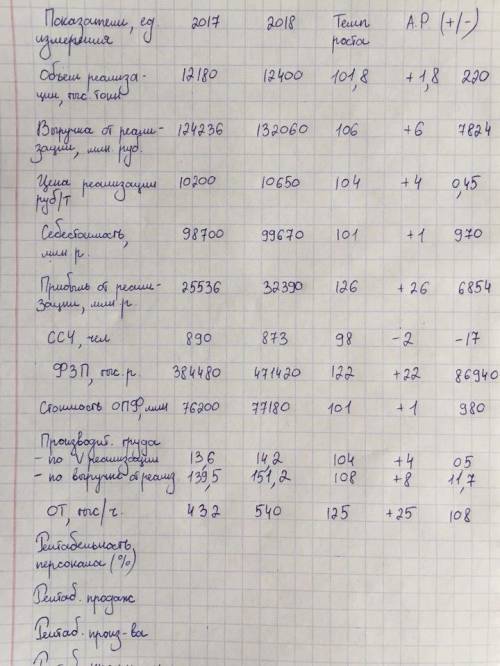 Показатели, ед. 2017 2018 Темп А.Р (+/-)
измерения роста
Объем реализа- 12180 12400 101,8 +1,8 220
ции, тыс тонн
Выручка от реали- 124236 132060 106 +6 7824
зации, млн. руб.
Цена реализации 10200 10650 104 +4 0,45
руб/т
Себестоимость, 98700 99670 101 +1 970
млн р.
Прибыль от реали- 25536 32390 126 +26 6854
зации, млн р.
ССЧ, чел 890 873 98 -2 -17
ФЗП, тыс. р. 384480 471420 122 +22 86940
Стоимость ОПФ, млн 76200 77180 101 +1 980
Производит. труда
- по V реализации 13,6 14,2 104 +4 05
- по выручке от реализ 139,5 151,2 108 +8 11,7
ОТ, тыс/ч. 432 540 125 +25 108
Рентабельность
персонала (%)
Рентаб. продаж
Рентаб. произ-ва